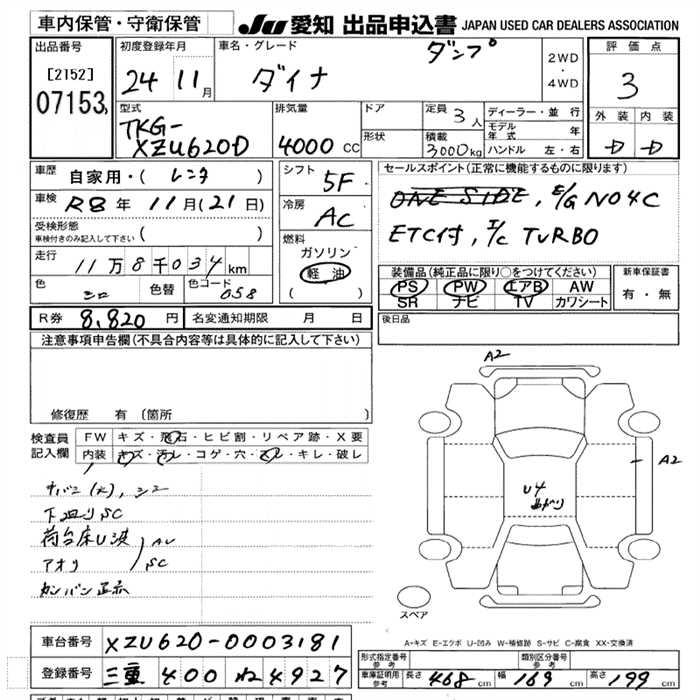 車内保管・守衛保管
JU 愛知 出品申込書 JAPAN USED CAR DEALERS ASSOCIATION
出品番号
[2152]
07153
初度登録年月
24 11月
車名・グレード
ダイナ
ダンプ
2WD
・
4WD
評価点
3
外装 内装
D D
型式
TKG-
XZU620D
排気量
4000 CC
ドア
形状
定員 3人
積載 3000kg
ディーラー・並行
モデル年式 年
ハンドル 左・右
車歴 自家用・( レンタ )
車検 R8年 11月(21日)
受検形態
車検付きのみ記入して下さい ( )
走行 11万8千034km
色 シロ 色替 色コード 058
シフト 5F
冷房 AC
燃料
ガソリン
軽油
( )
セールスポイント(正常に機能するものに限ります)
ONE SIDE, E/G NO4C
ETC付, I/C TURBO
装備品(純正品に限り○をつけてください)
PS PW エアB AW
SR ナビ TV カワシート
新車保証書
有・無
R券 8,820円 名変通知期限 月 日
後日品
注意事項申告欄(不具合内容等は具体的に記入して下さい)
修復歴 有 〔箇所
検査員
記入欄
FW キズ・飛石・ヒビ割・リペア跡・X要
内装 キズ・汚レ・コゲ・穴・スレ・キレ・破レ
下回りSC
荷台床U波
アオリ
AU
SC
カンバン
A2
A2
U4
スペア
A-キズ E-エクボ U-凹み W-補修跡 S-サビ C-腐食 XX-交換済
車台番号 XZU620-0003181
登録番号 三重 400 ね 4927
型式指定番号
参考
類別区分番号
参考
車庫証明用
参考
長さ 468cm 幅 169cm 高さ 199cm